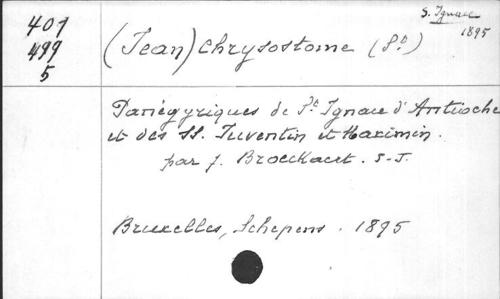 401
499
5
S. Ignace
1895
(Jean) Chrysostome (St)
Panégyriques de St Ignace d'Antioche
et des SS. Juventin et Maximin.
par J. Broeckaert. S-J.
Bruxelles, Schepens. 1895